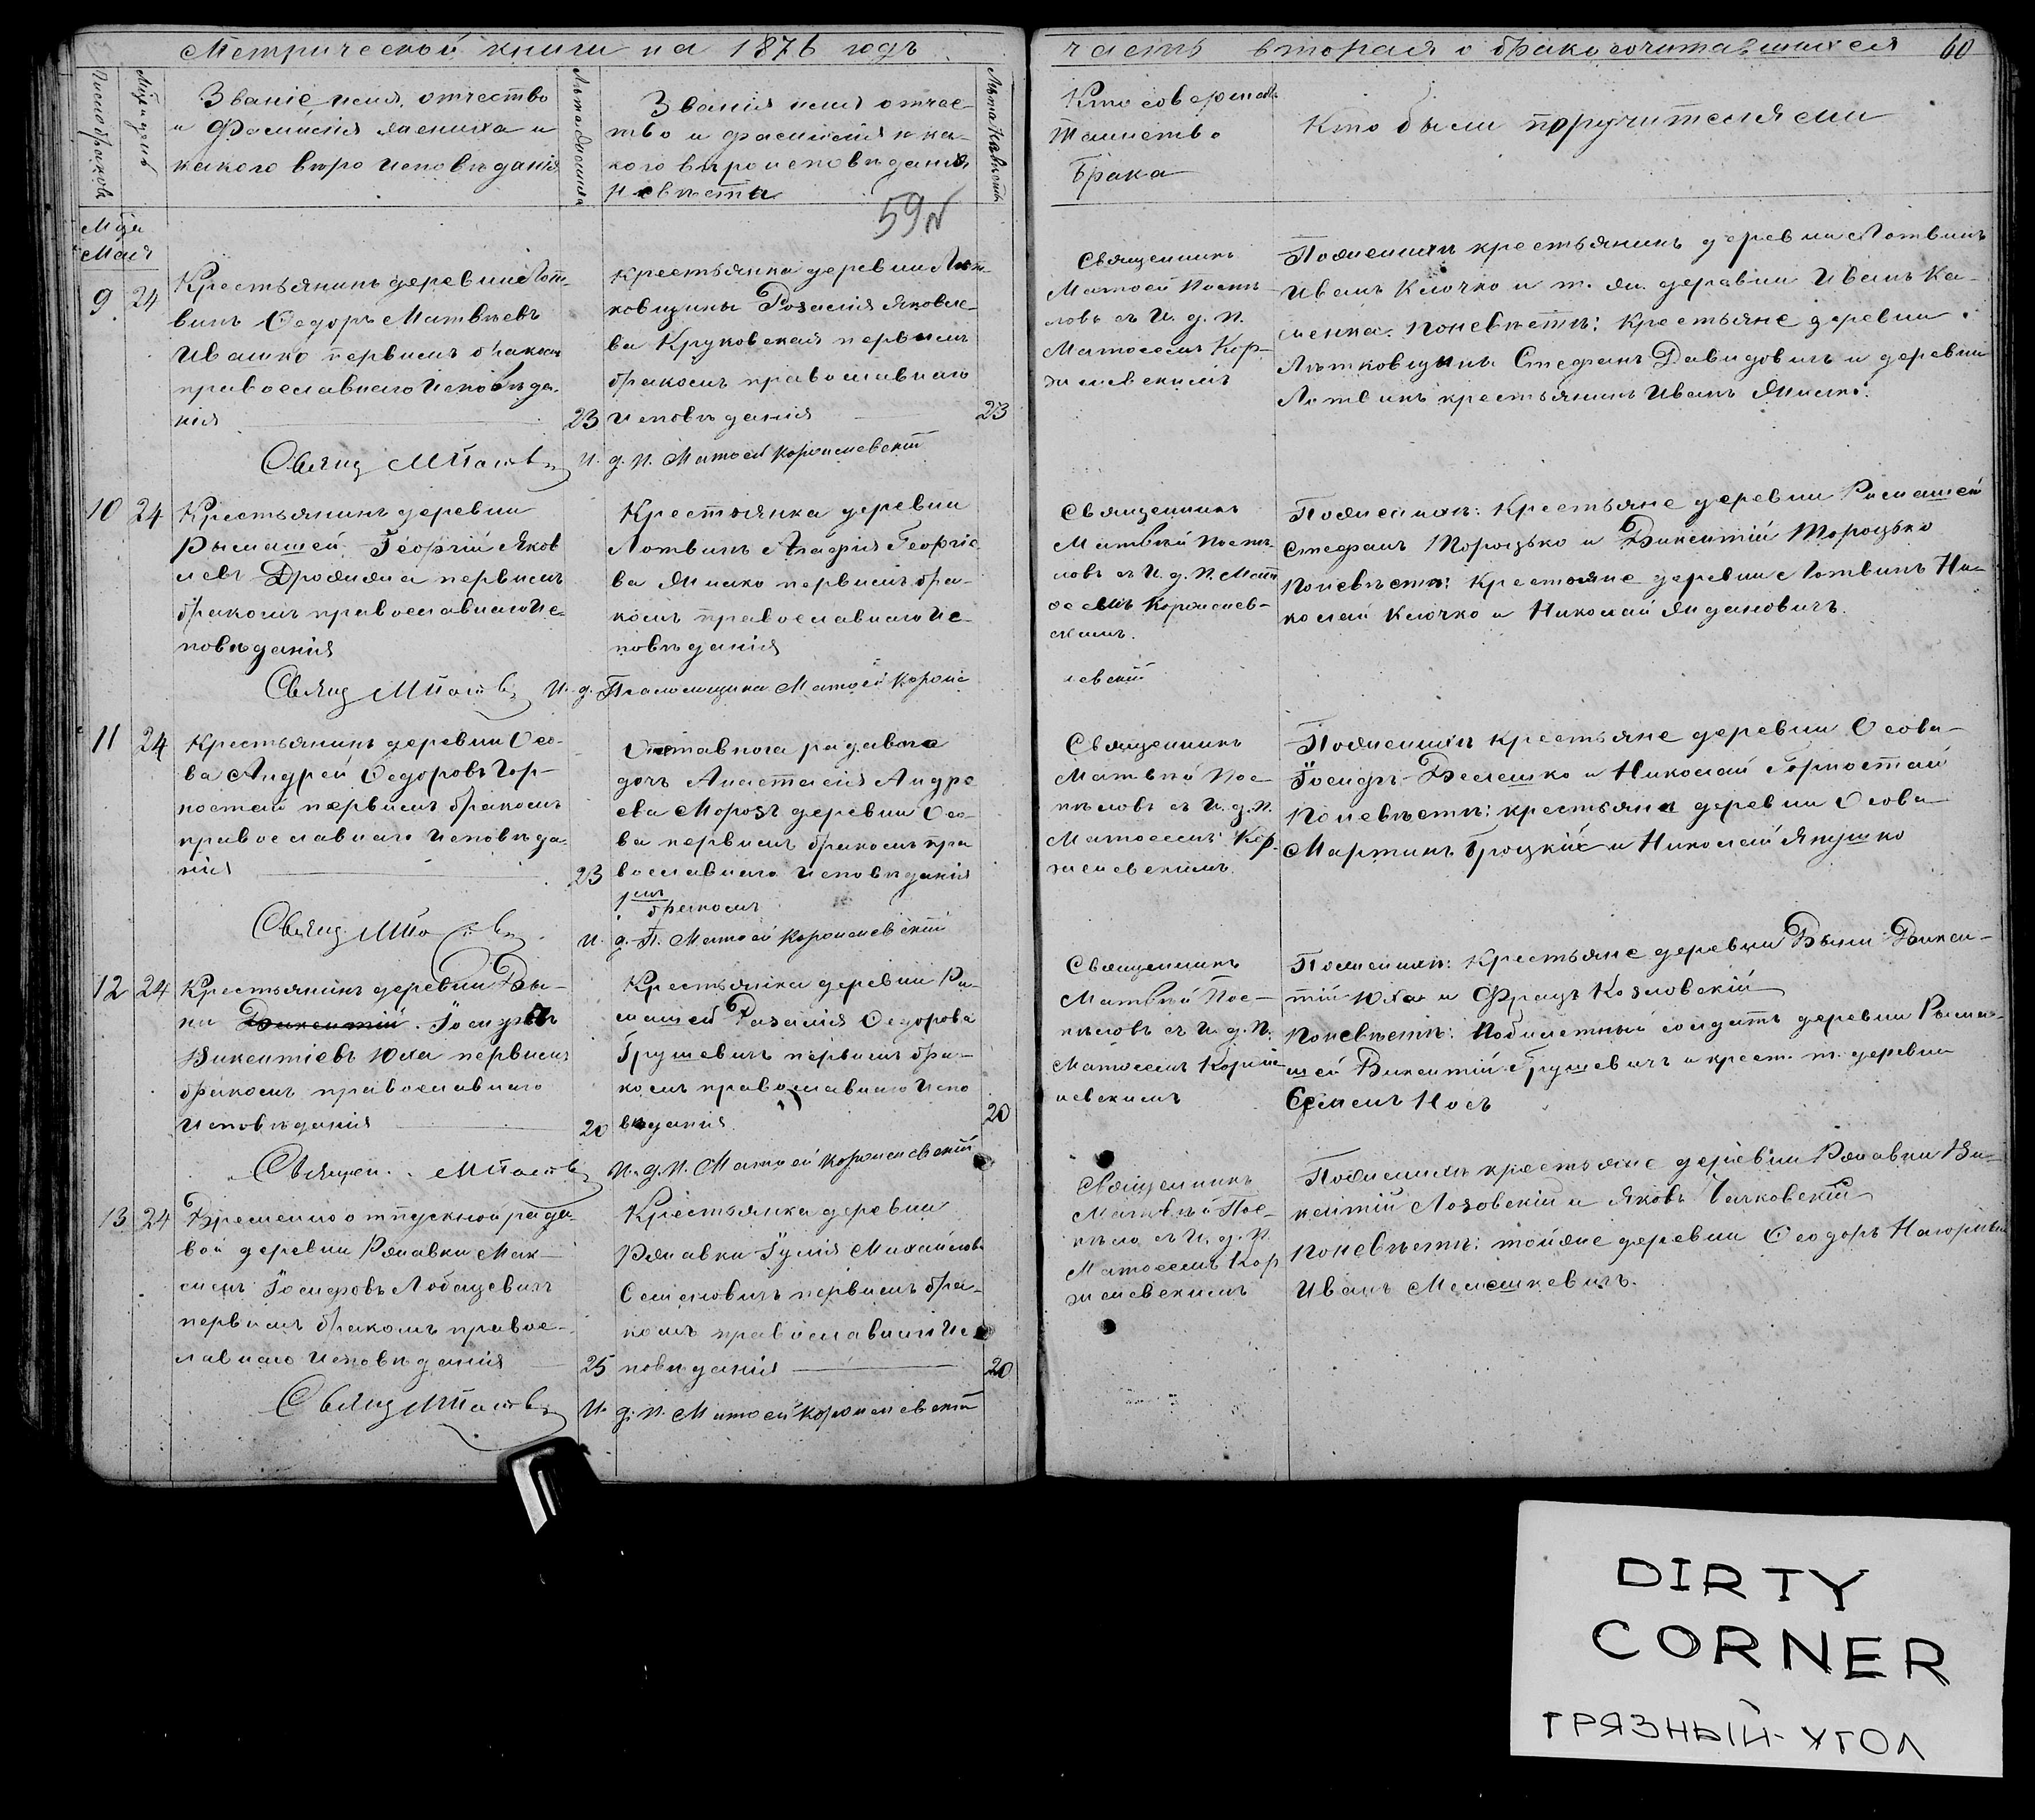 Метрической книги на 1876 годъ
часть вторая о бракосочитавшихся 60
Число браковъ
Мѣс. и день
Званіе имя, отчество
и Фамилія жениха и
какого вѣро исповѣданія
Лѣта жениха
Званія имя отчес-
тво и фамилія и ка-
кого вѣроисповѣданія,
Невѣста
59
Лѣта Невѣсты
Кто совершалъ
Таинство
Брака
Кто были поручителями
Мца
Мая
9 24
Крестьянинъ деревни Лот-
винъ Ѳедоръ Матвѣевъ
Ивашко первымъ бракомъ
православнаго исповѣда-
нія
23
крестьянка деревни
ковщины Розалія Яковле-
ва Круковская первымъ
бракомъ православнаго
исповѣданія
23
Свящ
и. д. п. Матѳей
Священникъ
Матѳей
ловъ съ И. д. П.
Матѳеемъ Кор-
жилевскимъ
Поженихѣ крестьянинъ деревни Лотвинъ
Иванъ Клочко и т. ж. деревни Иванъ Ка-
менка. Поневѣстѣ: Крестьяне деревни
Стефанъ Давидовичъ и деревни
Лотвинъ крестьянинъ Иванъ
10 24
Крестьянинъ деревни
Рымашей, Георгій Яков
левъ первымъ
бракомъ православнаго Ис-
повѣданія
Крестьянка деревни
Лотвинъ Агафія Георгіе
ва первымъ бра-
комъ православнаго Ис
повѣданія
Свящ
и. д. Псаломщика Матѳей
левскій
Священникъ
Матвѣй
ловъ съ И. д. П. Мат
ѳеемъ
скимъ.
Поженихѣ: Крестьяне деревни Римашей
Стефанъ Тороцько и Викентій Тороцько
Поневѣстѣ: Крестьяне деревни Лотвинъ Ни-
колай Клочко и Николай Ждановичъ.
11 24
Крестьянинъ деревни Осо-
ва Андрей Ѳедоровъ Гор-
ностай первымъ бракомъ
православнаго исповѣда-
нія
23
Отставнога радавога
дочъ Анастасія Андре
ева Морозъ деревни Осо-
ва первымъ бракомъ пра
вославнаго исповѣданія
1мъ бракомъ
Свящ
и. д. П. Матѳей
Священникъ
Матвѣй Пос-
ловъ съ И. д. П.
Матѳеемъ Кор-
жилевскимъ.
Поженихѣ крестьяне деревни Осова-
Іосифъ Велешко и Николай Горностай
Поневѣстѣ: крестьяне деревни Осова
Мартинъ Троцкій и Николай Янушко
12 24
Крестьянинъ деревни Вы-
ни Викентій. Іосифъ
Викентіевъ Юха первымъ
бракомъ православнаго
исповѣданія
20
Крестьянка деревни Ри-
машей Розалія Ѳедорова
Грушевичъ первымъ бра-
комъ православнаго испо
вѣданія.
20
Священ.
и. д. п. Матѳей
Священникъ
Матвѣй Пос-
ловъ съ И. д. П.
Матѳеемъ
левскимъ
Поженихѣ: Крестьяне деревни Выни Викен-
тій Юха и Францъ Козловскій
Поневѣстѣ: побилетный солдатъ деревни Рыма-
шей Викентій Грушевичъ и крест. т. деревни
Семенъ Носъ
13 24
Временно отпускной рядо-
вой деревни Ржавки Мак-
симъ Іосифовъ Лобацевичъ
первымъ бракомъ правос-
лавнаго исповѣданія
25
Крестьянка деревни
Ржавки Іулія Михайлова
Семеновичъ первымъ бра-
комъ православнаго Ис
повѣданія
20
Свящ
и. д. п. Матѳей
Священникъ
Матвѣй Пос-
съ И. д. П.
Матѳеемъ Кор
жилевскимъ
Поженихѣ крестьяне деревни Ржавки Ви-
кентій Лозовскій и Яковъ
Поневѣстѣ: тойже деревни Ѳеодоръ
Иванъ Мелешкевичъ.
DIRTY
CORNER
ГРЯЗНЫЙ-УГОЛ